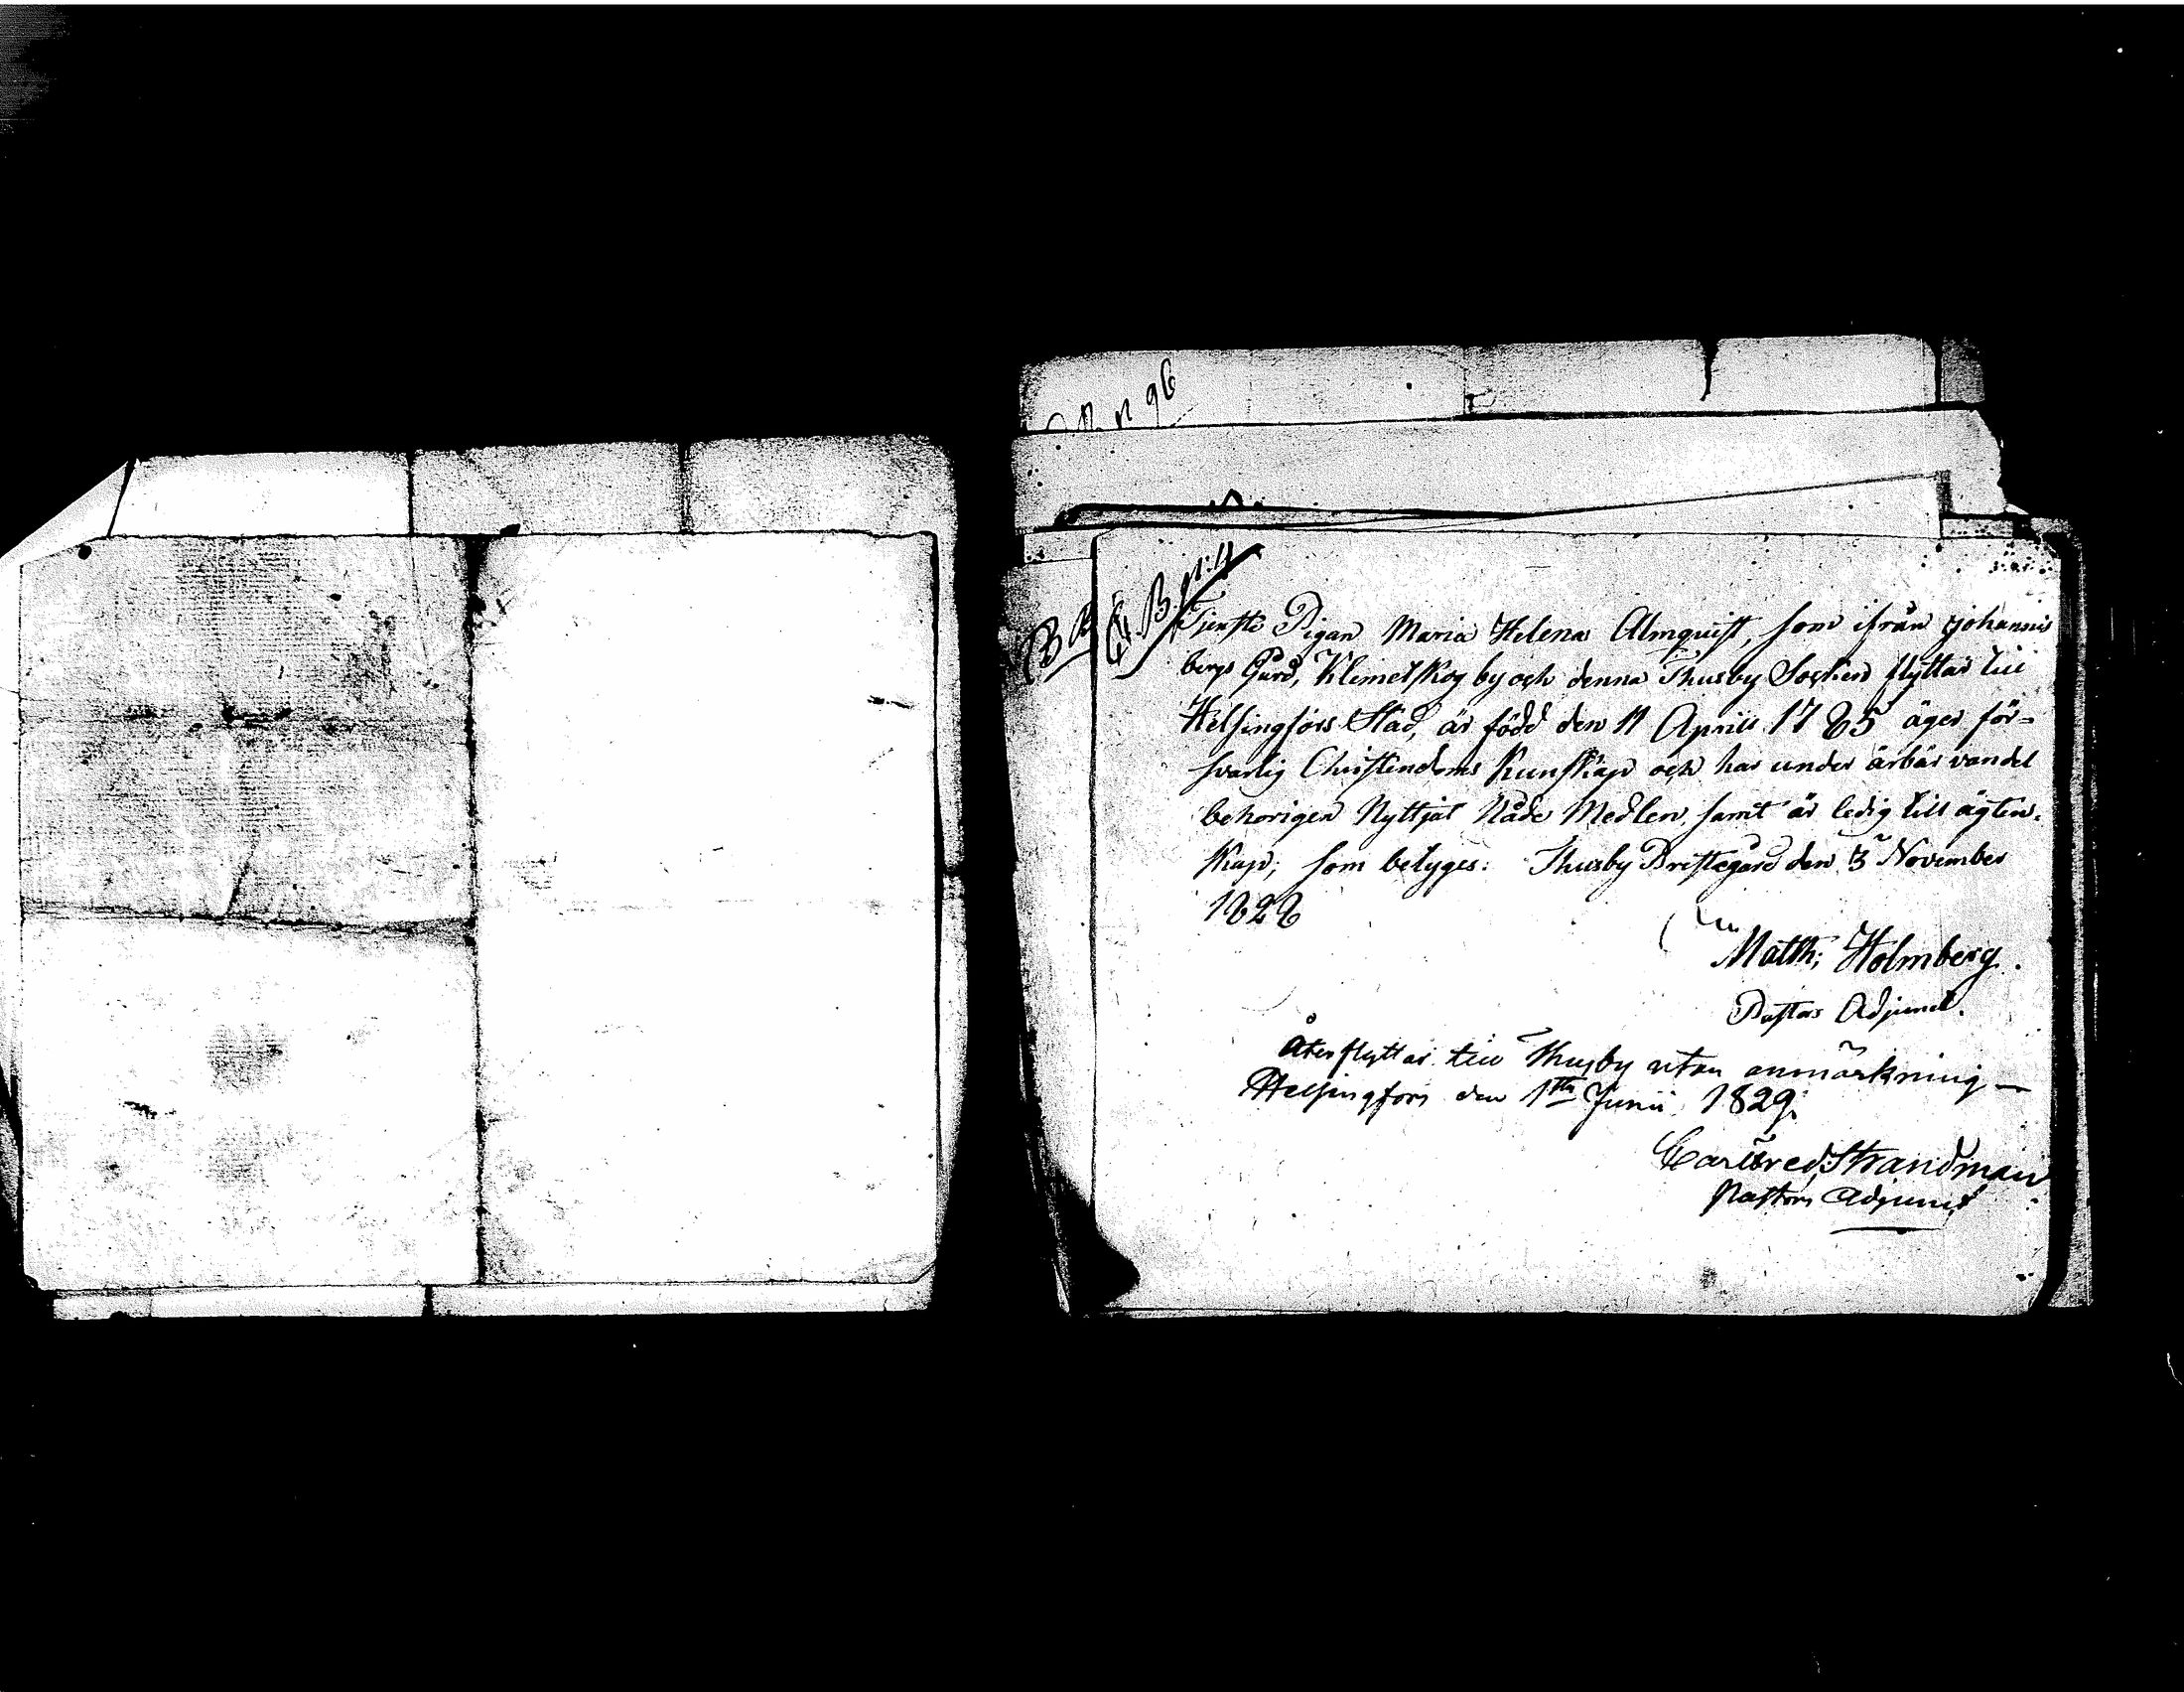 n 96
B B
B. n:11
Tjenste Pigan Maria Helena Almquist, som ifrån Johannis
bergs Gård, Klemetskog by och denna Thusby Socken flyttar till
Helsingfors Stad, är född den 11 Aprill 1785 äger för=
svarlig Christendoms Kunskap och har under ärbar vandel
behorigen Nyttjat Nåde Medlen, samt är ledig till ägten-
skap; som betyges: Thusby Prestegård den 3 November
1828
Matth; Holmberg.
Pastors Adjunct.
Återflyttar till Thusby utan anmärkning —
Helsingfors den 1th Junii 1829.
Strandman
Pastors Adjunct